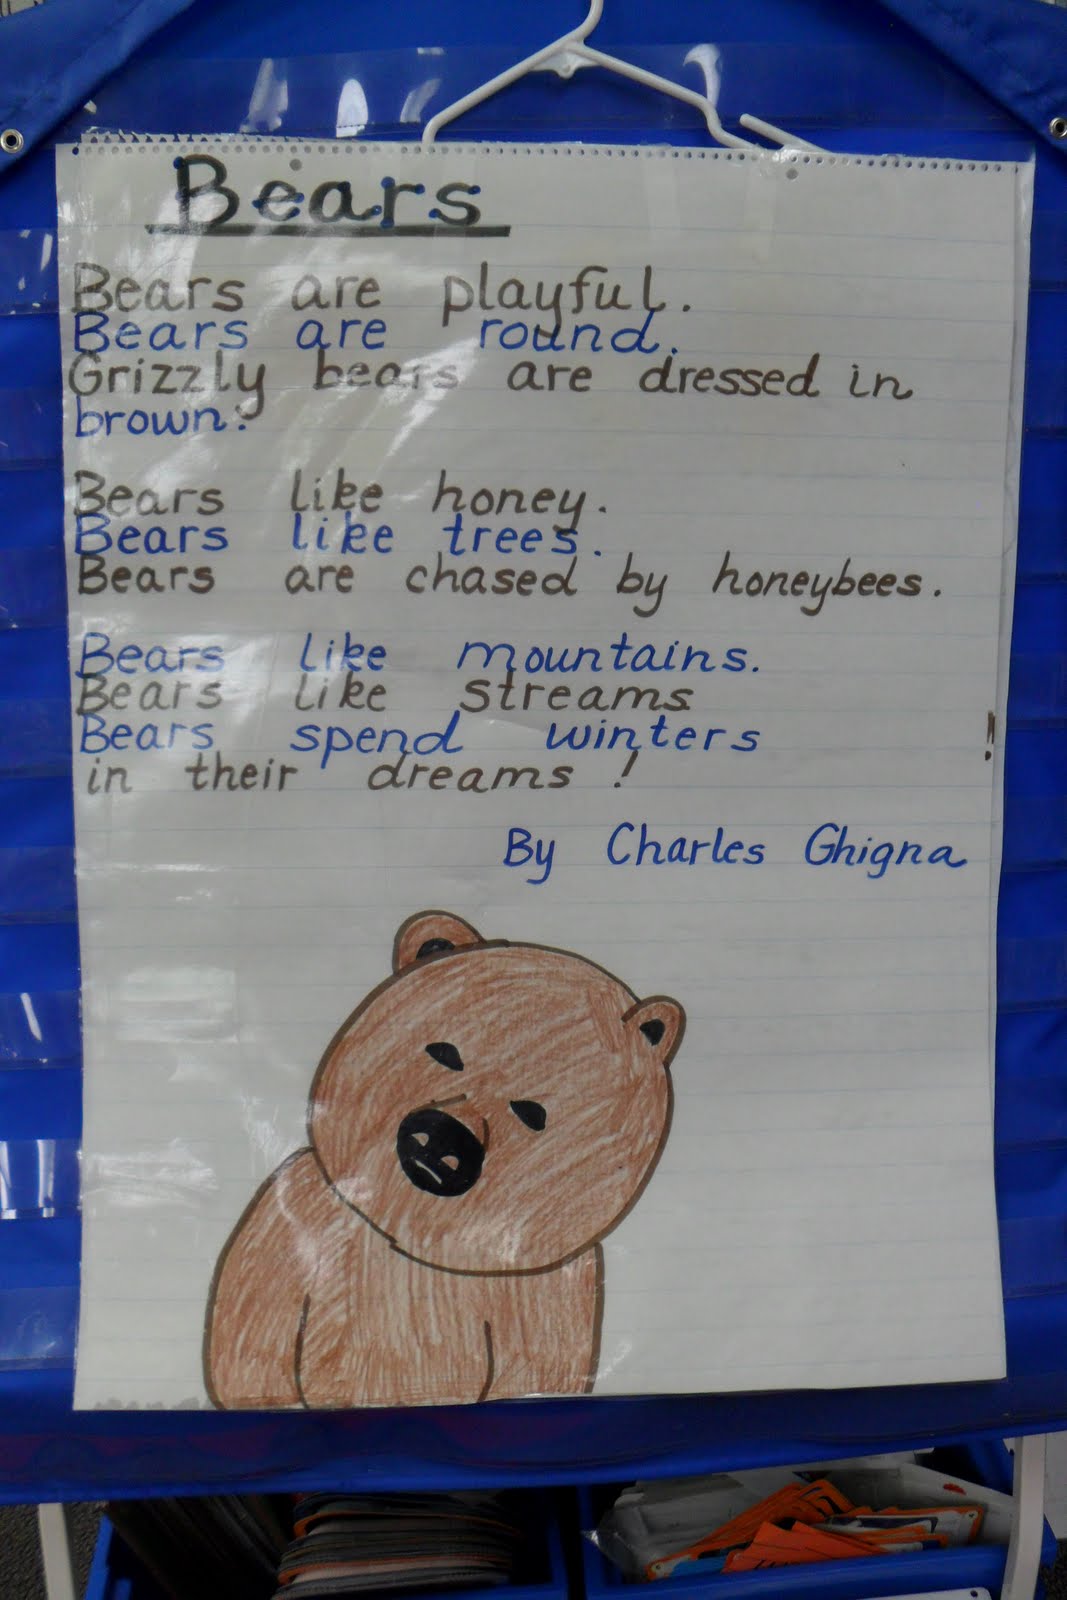 Bears
Bears are playful.
Bears are round.
Grizzly bears are dressed in
brown.
Bears like honey.
Bears like trees.
Bears are chased by honeybees.
Bears like mountains.
Bears like streams
Bears spend winters
in their dreams!
!
By Charles Ghigna